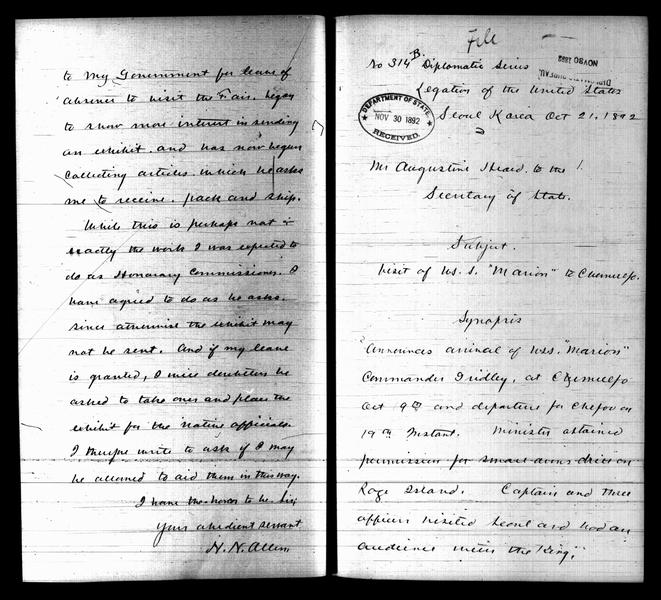 to my Government for leave of
absence to visit the Fair, began
to show more interest in sending
an exhibit, and has now begun
collecting articles which he asks
me to receive, pack and ship.
While this is perhaps not
exactly the work I was expected to
do as Honorary Commissioner, I
have agreed to do as he asks,
since otherwise the exhibit may
not be sent. And if my leave
is granted, I will doubtless be
asked to take over and place the
exhibit for the native officials.
I therefore write to ask if I may
be allowed to aid them in this way.
I have the honor to be, Sir,
Your obedient servant
H. N. Allen
File
No 314 B. Diplomatic Series
NOV 30 1892
Legation of the United States
Seoul Korea Oct 21, 1892
DEPARTMENT OF STATE.
NOV 30 1892
RECEIVED.
Mr Augustine Heard, to the
Secretary of State.
Subject.
Visit of U.S.S. "Marion" to Chemulpo.
Synopsis
"Announces arrival of USS. "Marion"
Commander Gridley, at Chemulpo
Oct 9th and departure for Chefoo on
19th Instant. Minister obtained
permission for small arms drill on
Roze Island. Captain and three
officers visited Seoul and had an
audience with the King."